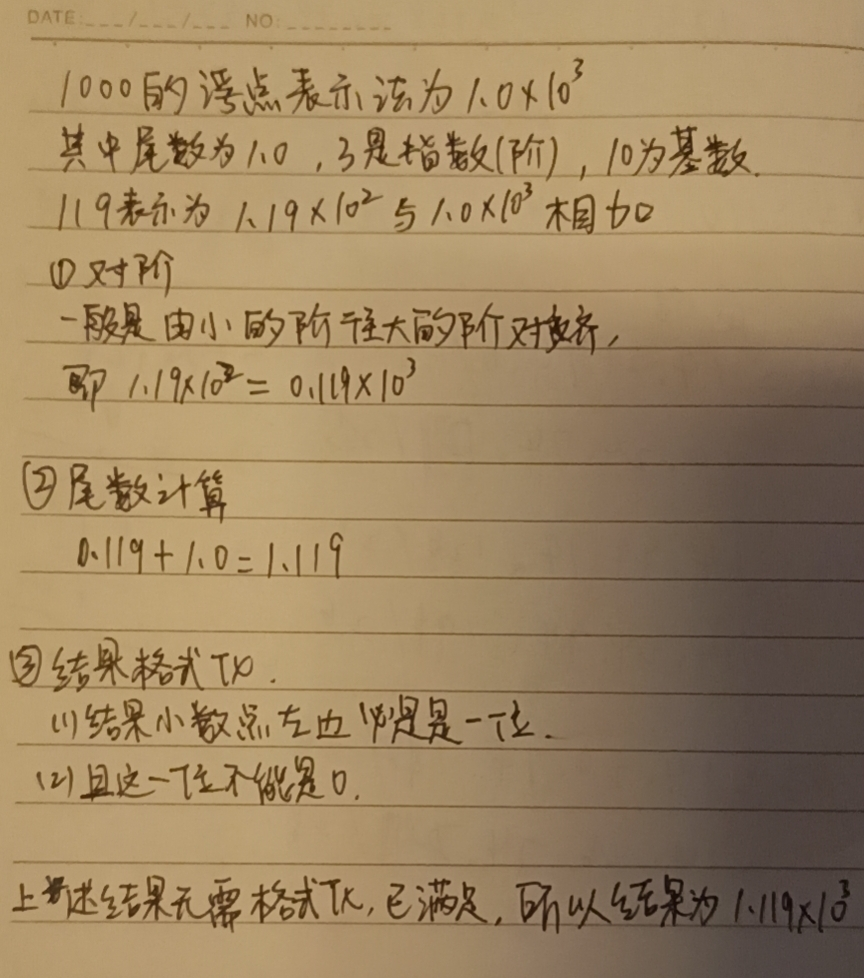 DATE:___/___/___ NO:________
1000的浮点表示法为1.0×10³
其中尾数为1.0，3是指数(阶)，10为基数.
119表示为 1.19×10² 与1.0×10³ 相加
①对阶
一般是由小的阶往大的阶对齐，
即 1.19×10² = 0.119×10³
②尾数计算
0.119+1.0=1.119
③结果格式化.
(1)结果小数点左边必是是一位.
(2)且这一位不能是0.
上述结果无需格式化,已满足,所以结果为1.119×10³